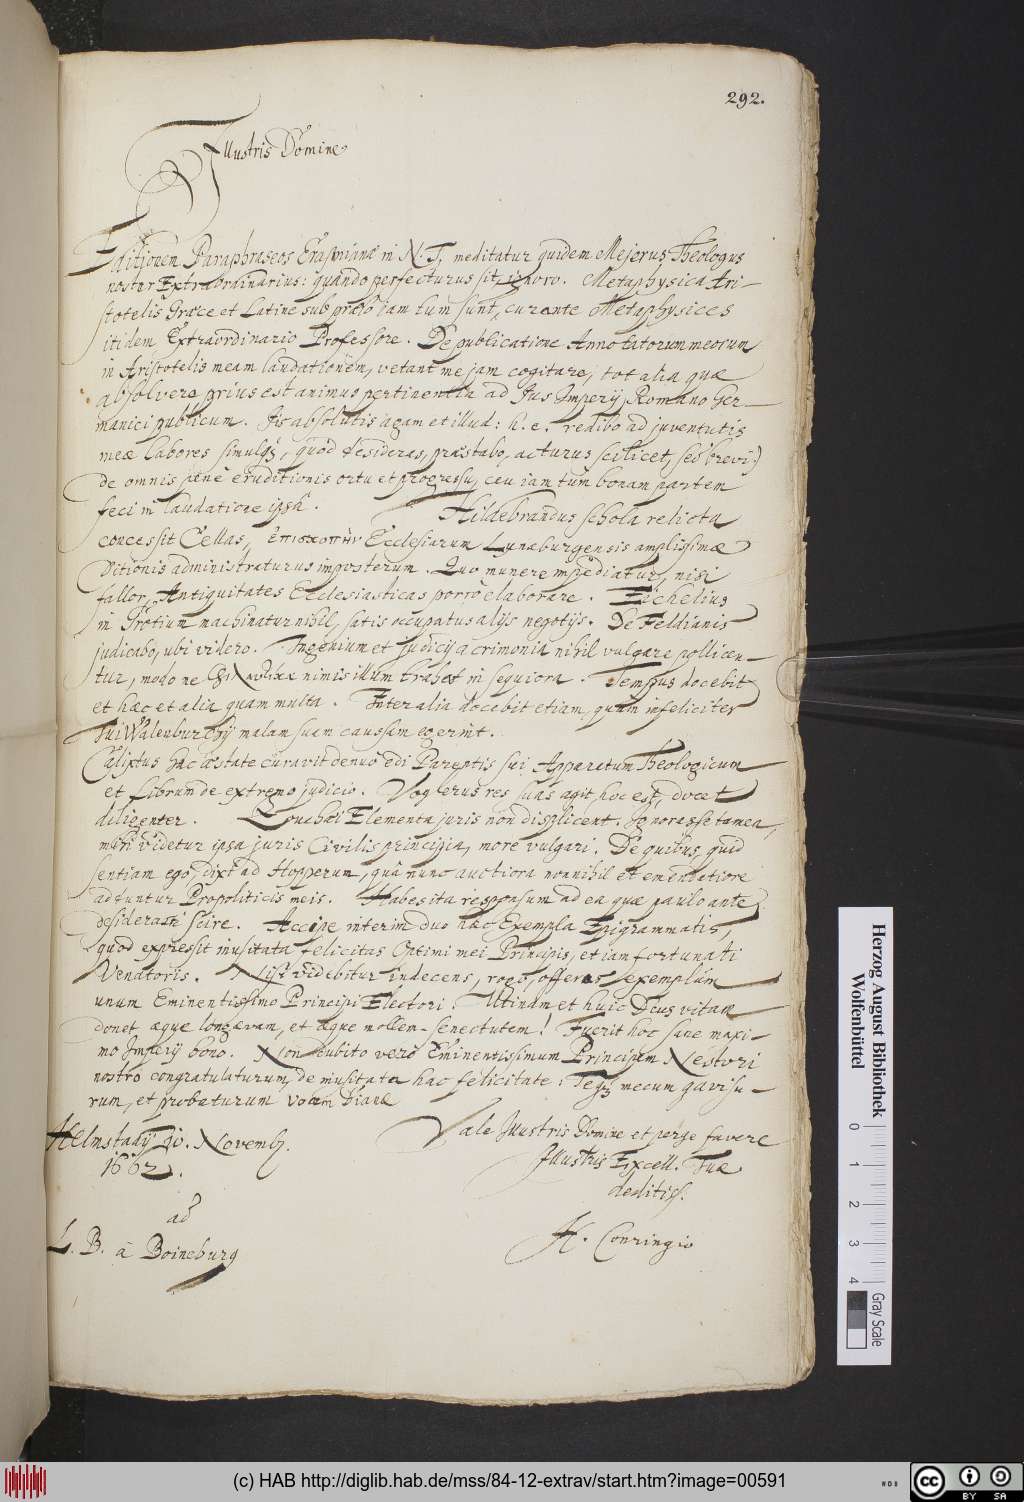 292.
Illustris Domine
Editionem Paraphraseos Erasmianæ in N. T. meditatur quidem Mejerus Theologus
noster Extraordinarius: quando perfecturus sit, ignoro. Metaphysica Ari-
stotelis Græce et Latine sub prælo iam tum sunt, curante Metaphysices
itidem Extraordinario Professore. De publicatione Annotatorum meorum
in Aristotelis meam laudationem, vetant me jam cogitare, tot alia quæ
absolvere prius est animus pertinentia ad Jus Imperij Romano Ger-
manici publicum. His absolutis agam et illud: h. e. redibo ad juventutis
meæ labores simulq, quod desideras, præstabo, acturus scilicet, sed brevi)
de omnis pæne eruditionis ortu et progressu, ceu iam tum bonam partem
feci in laudatione ipsa. Hildebrandus schola relicta
concessit Cellas, ἐπισκοπὴν Ecclesiarum Lynæburgensis amplissimæ
Ditionis administraturus imposterum. Quo munere impediatur, nisi
fallor, Antiquitates Ecclesiasticas porro elaborare. Eichelius
in Grotium machinatur nihil, satis occupatus alijs negotijs. De Feldianis
judicabo, ubi videro. Ingenium et judicij acrimonia nihil vulgare pollicen-
tur, modo ne nimis illum trahat in sequiora. Tempus docebit
et hæc et alia quam multa. Inter alia docebit etiam, quam infeliciter
Tui Walenburchij malam suam caussam egerint.
Calixtus hac æstate curavit denuo edi Parentis sui Apparatum Theologicum
et Librum de extremo judicio. Voglerus res suas agit, hoc est, docet
diligenter. Zouchæi Elementa juris non displicent. Ignorasse tamen,
mihi videtur ipsa juris Civilis principia, more vulgari. De quibus, quid
sentiam ego, dixi ad Hopperum, quæ nunc auctiora nonnihil et emendatiore
adfuntur Propoliticis meis. Habes ita responsum ad ea quæ paulo ante
desiderasti scire. Accipe interim duo hæc Exempla Epigrammatis,
quod expressit inusitata felicitas Optimi mei Principis, etiam fortunati
Venatoris. Nisi videbitur indecens, rogo, offeras exemplum
unum Eminentissimo Principi Electori. Utinam et huic Deus vitam
donet æque longævam, et æque mollem senectutem! Fuerit hoc sane maxi-
mo Imperij bono. Non dubito vero Eminentissimum Principem Nestori
nostro congratulaturum, de inusitata hac felicitate. Teq mecum gavisu-
rum, et probaturum vocem Dianæ
Helmstadij Novemb. Vale Illustris Domine et perge favere
1662. Illustris Excell. Tuæ
deditiss.
ad
L. B. à Boineburg H. Conringio
Herzog August Bibliothek
Wolfenbüttel
0 1 2 3 4
Gray Scale
(c) HAB http://diglib.hab.de/mss/84-12-extrav/start.htm?image=00591
cc BY SA